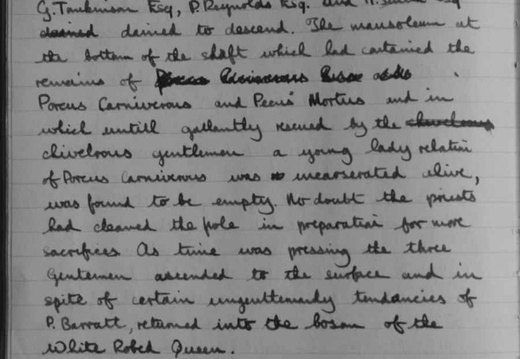 G. Tomkinson Esq, P. Reynolds Esq. and H.
dained to descend. The mausoleum at
the bottom of the shaft which had contained the
remains of
Porcus Carniverous and Pecus Mortus and in
which untill gallantly rescued by the
chivelrous gentlemen a young lady relation
of Porcus Carniverous was incarserated alive,
was found to be empty. No doubt the priests
had cleaned the hole in preparation for more
sacrifices. As time was pressing the three
Gentemen ascended to the surface and in
spite of certain ungentlemenly tendancies of
P. Barratt, returned into the bosom of the
White Robed Queen.